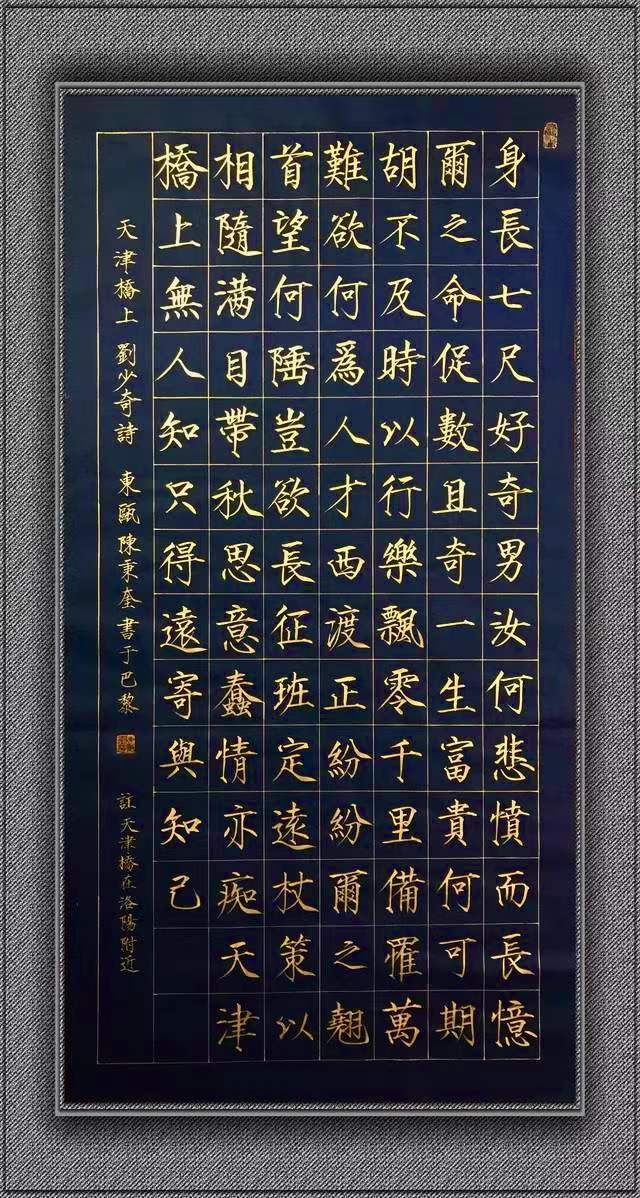 身長七尺好奇男汝何悲憤而長憶
爾之命促數且奇一生富貴何可期
胡不及時以行樂飄零千里備罹萬
難欲何為人才西渡正紛紛爾之翹
首望何陲豈欲長征班定遠杖策以
相隨满目帶秋思意蠢情亦痴天津
橋上無人知只得遠寄與知己
天津橋上 劉少奇詩 東甌陳秉奎書于巴黎
註天津橋在洛陽附近